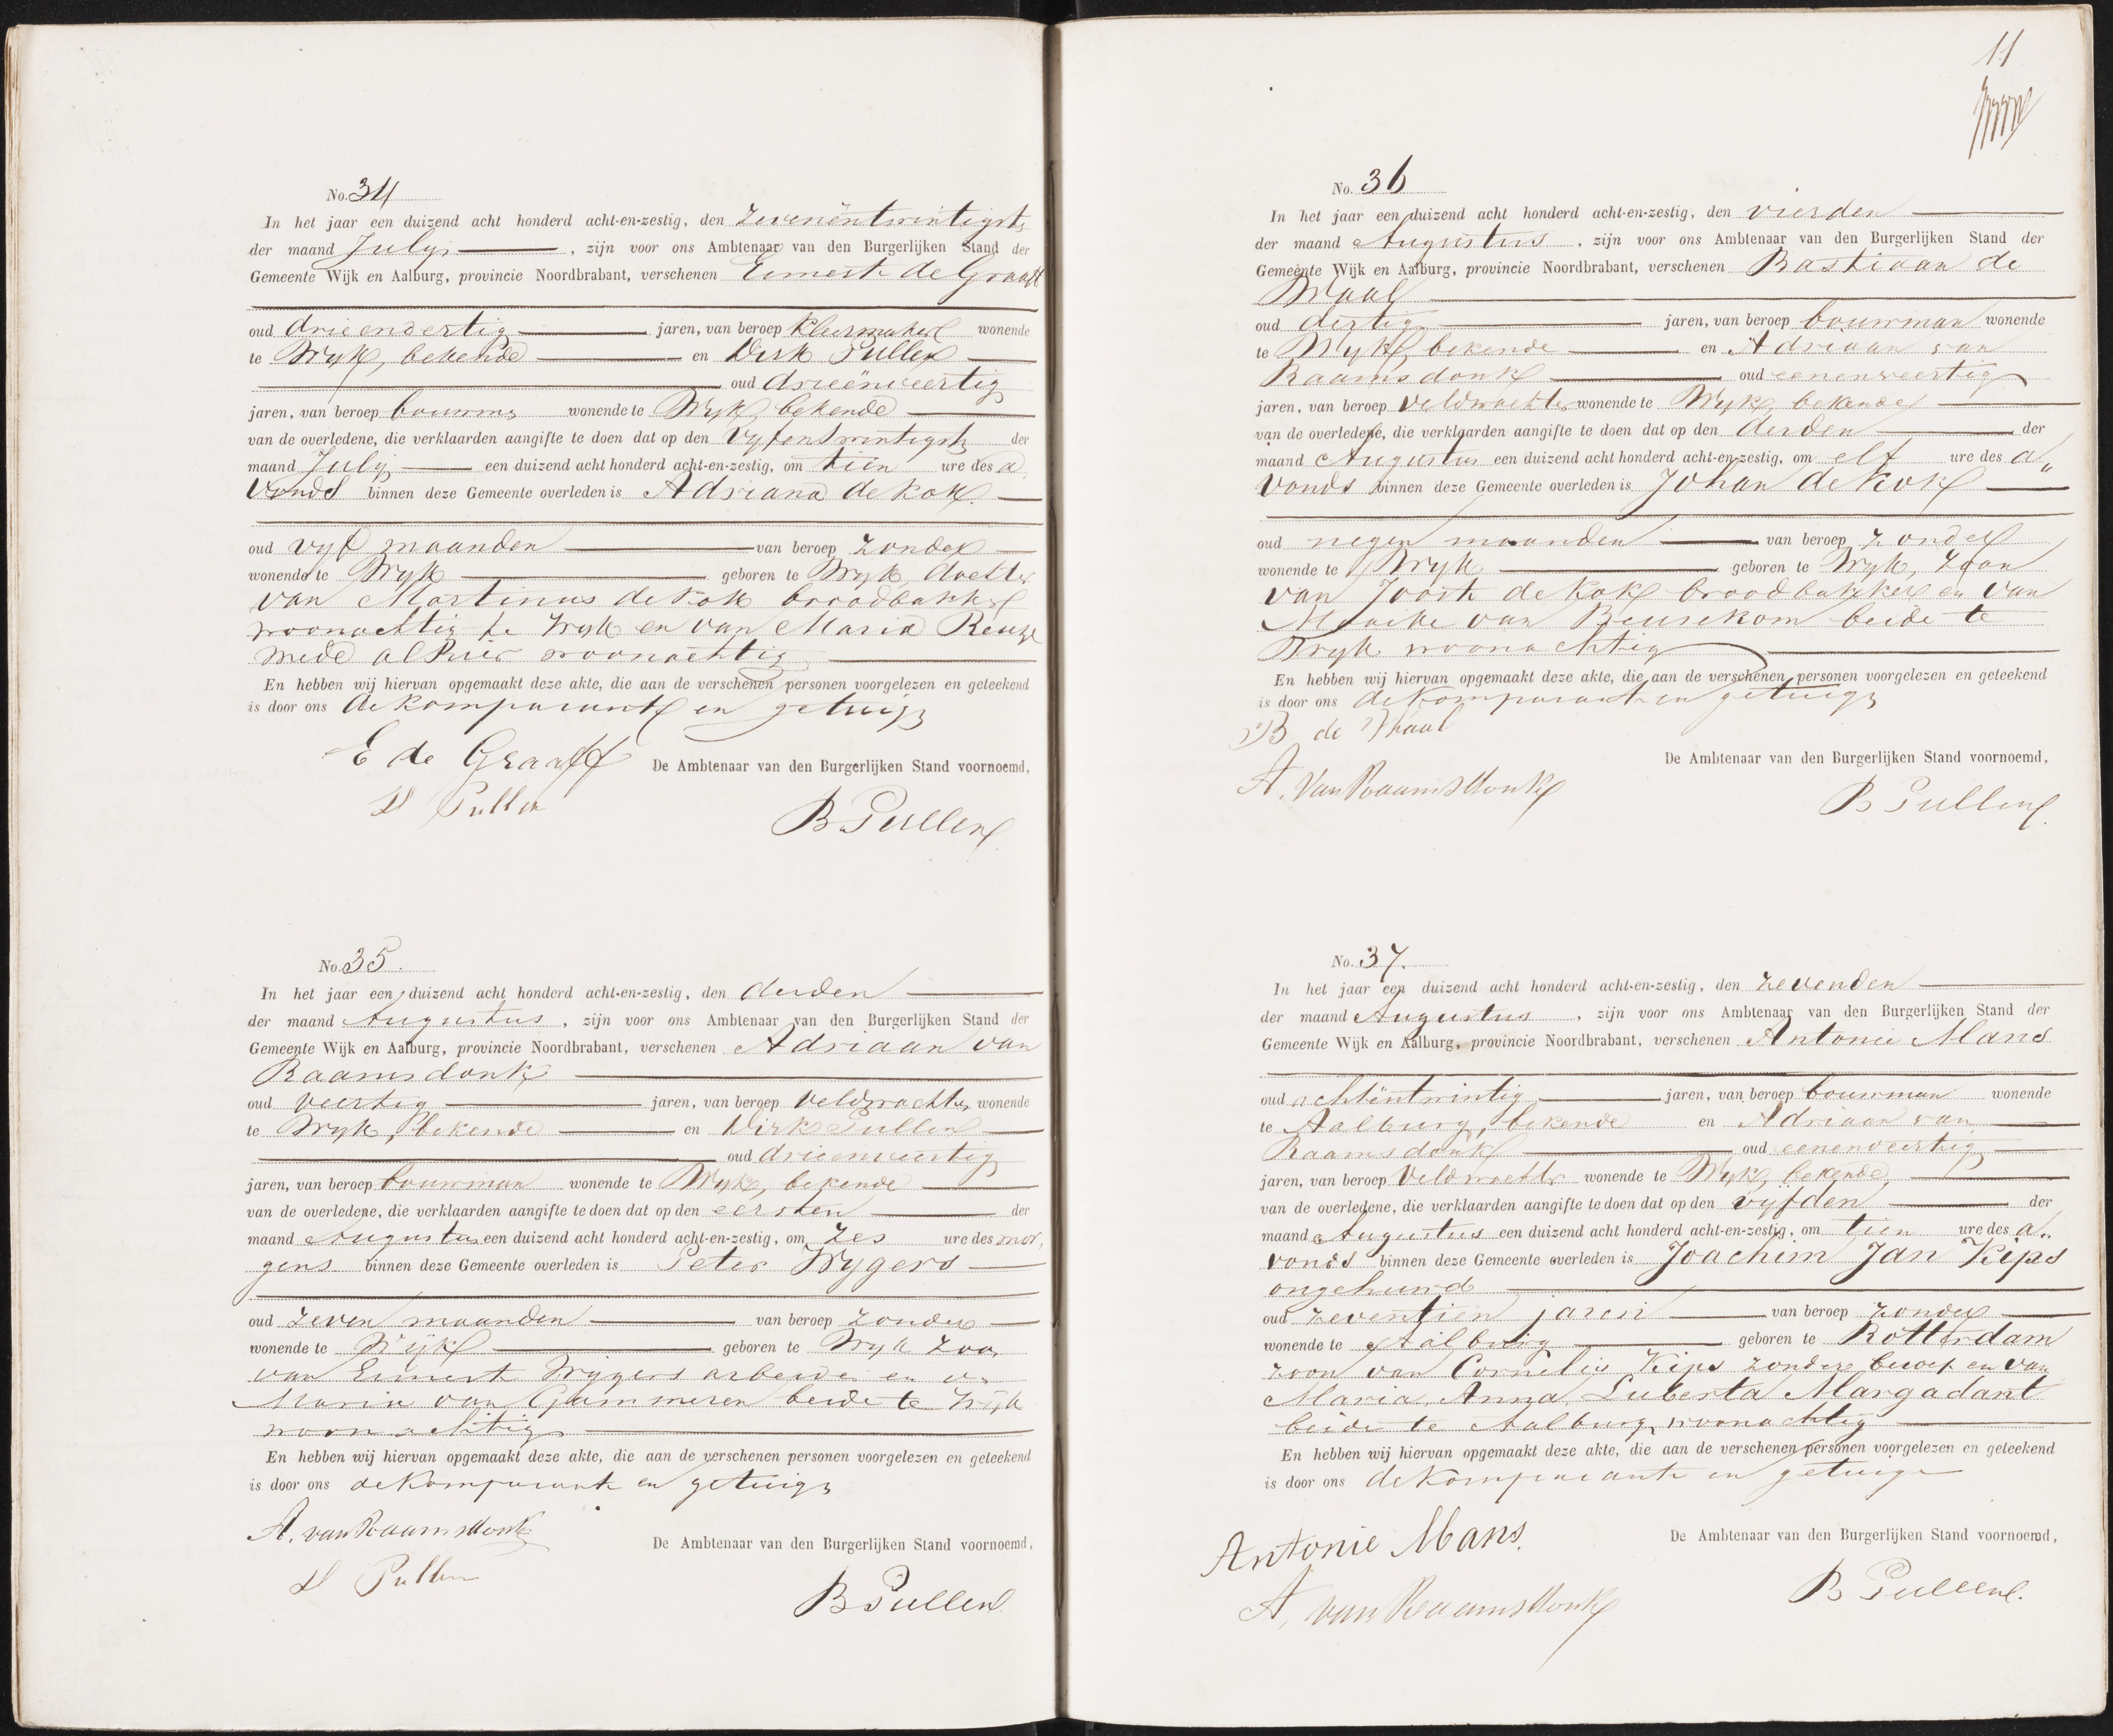 No. 34
In het jaar een duizend acht honderd acht-en-zestig, den zevenëntwintigste
der maand July, zijn voor ons Ambtenaar van den Burgerlijken Stand der
Gemeente Wijk en Aalburg, provincie Noordbrabant, verschenen Emmert de Graaff
oud drieendertig jaren, van beroep kleermaker wonende
te Wyk, bekende en Dirk Pullen
oud drieënveertig
jaren, van beroep bouwmn wonende te Wyk, bekende
van de overledene, die verklaarden aangifte te doen dat op den vyfentwintigste der
maand July een duizend acht honderd acht-en-zestig, om tien ure des a
vonds binnen deze Gemeente overleden is Adriana de Kok
oud vyf maanden van beroep zonder
wonende te Wyk geboren te Wyk, dochter
van Martinus de Kok broodbakker
woonachtig te Wyk en van Maria
mede alhier woonachtig
En hebben wij hiervan opgemaakt deze akte, die aan de verschenen personen voorgelezen en geteekend
is door ons de komparante en getuige
E de Graaff
De Ambtenaar van den Burgerlijken Stand voornoemd,
D Pullen
B Pullen
No. 35.
In het jaar een duizend acht honderd acht-en-zestig, den derden
der maand Augustus, zijn voor ons Ambtenaar van den Burgerlijken Stand der
Gemeente Wijk en Aalburg, provincie Noordbrabant, verschenen Adriaan van
Raamsdonk
oud veertig jaren, van beroep veldwachter wonende
te Wyk, bekende en Dirk Pullen
oud drieenveertig
jaren, van beroep bouwman wonende te Wyk, bekende
van de overledene, die verklaarden aangifte te doen dat op den eersten der
maand Augustus een duizend acht honderd acht-en-zestig, om zes ure des mor,
gens binnen deze Gemeente overleden is Peter Wygers
oud zeven maanden van beroep zonder
wonende te Wijk geboren te Wyk zoon
van Emmert Wijgers arbeider en van
Maria van Gammeren beide te Wijk
woonachtig
En hebben wij hiervan opgemaakt deze akte, die aan de verschenen personen voorgelezen en geteekend
is door ons de komparante en getuige
A. van Raamsdonk
De Ambtenaar van den Burgerlijken Stand voornoemd,
D Pullen
B Pullen
11
No. 36
In het jaar een duizend acht honderd acht-en-zestig, den vierden
der maand Augustus, zijn voor ons Ambtenaar van den Burgerlijken Stand der
Gemeente Wijk en Aalburg, provincie Noordbrabant, verschenen Bastiaan de
Waal
oud dertig jaren, van beroep bouwman wonende
te Wyk, bekende en Adriaan van
Raamsdonk oud eenenveertig
jaren, van beroep veldwachter wonende te Wyk, bekende
van de overledene, die verklaarden aangifte te doen dat op den derden der
maand Augustus een duizend acht honderd acht-en-zestig, om elf ure des a„
vonds binnen deze Gemeente overleden is Johan de Kok
oud negen maanden van beroep zonder
wonende te Wryk geboren te Wyk, zoon
van Joost de Kok broodbakker en van
Maaike van Beusekom beide te
Wyk woonachtig
En hebben wij hiervan opgemaakt deze akte, die aan de verschenen personen voorgelezen en geteekend
is door ons de komparante en getuige
B de Waal
De Ambtenaar van den Burgerlijken Stand voornoemd,
A. van Raamsdonk
B Pullen
No. 37.
In het jaar een duizend acht honderd acht-en-zestig, den zevenden
der maand Augustus, zijn voor ons Ambtenaar van den Burgerlijken Stand der
Gemeente Wijk en Aalburg, provincie Noordbrabant, verschenen Antonie Mans
oud achtëntwintig jaren, van beroep bouwman wonende
te Aalburg, bekende en Adriaan van
Raamsdonk oud eenenveertig
jaren, van beroep veldwachter wonende te Wyk, bekende
van de overledene, die verklaarden aangifte te doen dat op den vyfden der
maand Augustus een duizend acht honderd acht-en-zestig, om tien ure des a„
vonds binnen deze Gemeente overleden is Joachim Jan Kips
ongehuwd
oud zeventien jaren van beroep zonder
wonende te Aalburg geboren te Rotterdam
zoon van Cornelis Kips zonder beroep en van
Maria Anna Luberta Margadant
beide te Aalburg woonachtig
En hebben wij hiervan opgemaakt deze akte, die aan de verschenen personen voorgelezen en geteekend
is door ons de komparante en getuige
Antonie Mans.
De Ambtenaar van den Burgerlijken Stand voornoemd,
A. van Raamsdonk
B Pullen.